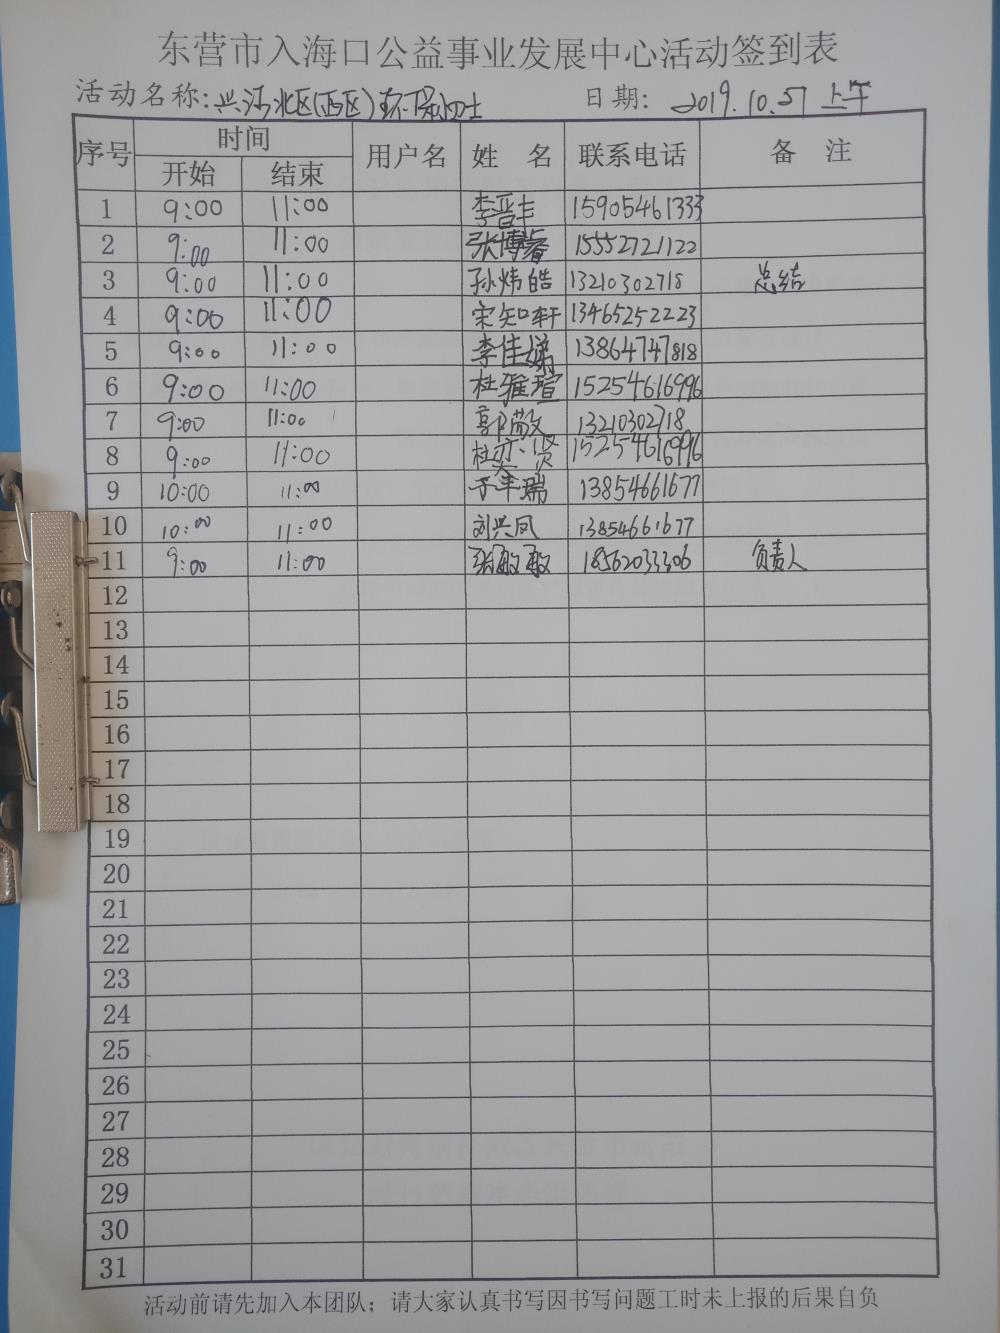 东营市入海口公益事业发展中心活动签到表
活动名称:兴河北区(西区)环保卫士 日期: 2019.10.27 上午
序号 时间 用户名 姓名 联系电话 备注
开始 结束
1 9:00 11:00 李晋丰 15905461333
2 9:00 11:00 张博睿 15552721122
3 9:00 11:00 孙炜皓 13210302718 总结
4 9:00 11:00 宋知轩 13465252223
5 9:00 11:00 李佳娣 13864747818
6 9:00 11:00 杜雅瑄 15254616996
7 9:00 11:00 郭敬 13210302718
8 9:00 11:00 杜亦贤 15254616996
9 10:00 11:00 于丰瑞 13854661677
10 10:00 11:00 刘兴凤 13854661677
11 9:00 11:00 张敏敏 18562033306 负责人
12
13
14
15
16
17
18
19
20
21
22
23
24
25
26
27
28
29
30
31
活动前请先加入本团队；请大家认真书写因书写问题工时未上报的后果自负